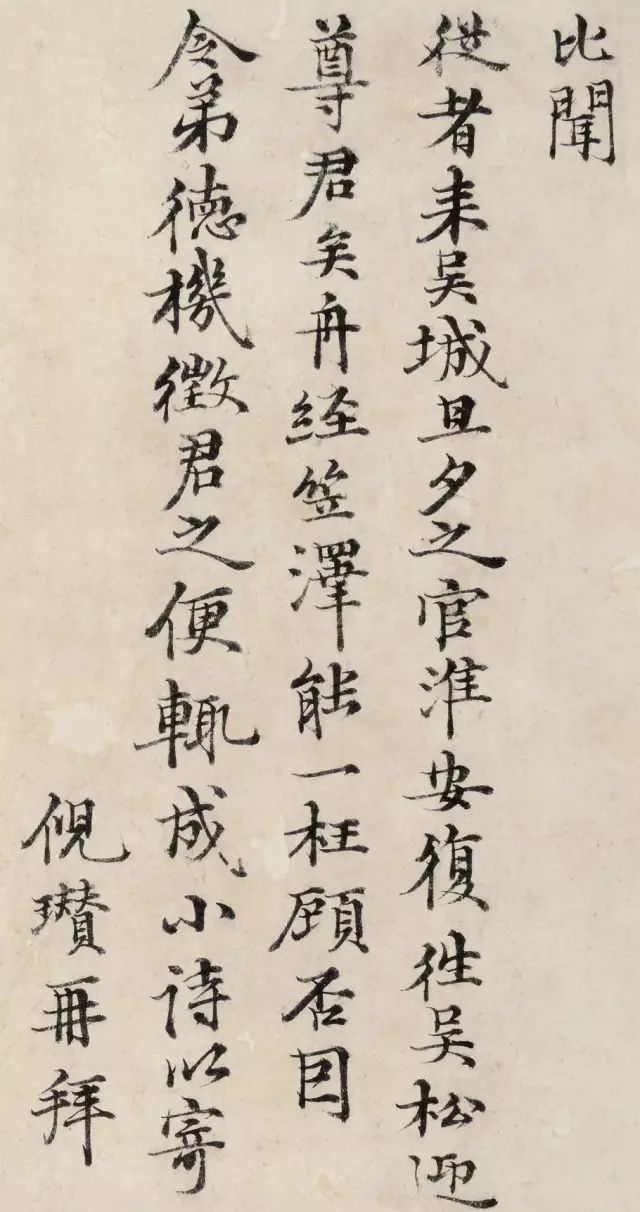 比聞
從者来吳城旦夕之官淮安復往吳松迎
尊君矣舟經笠澤能一枉顧否因
令弟德機徵君之便輒成小詩以寄
倪瓚再拜